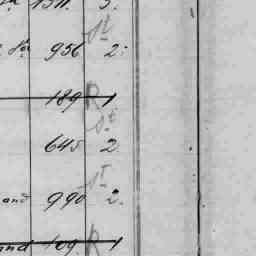 1511. 3.
St
956 2.
189 R 1
St
645 2
St
and 990 2.
and 109. R 1